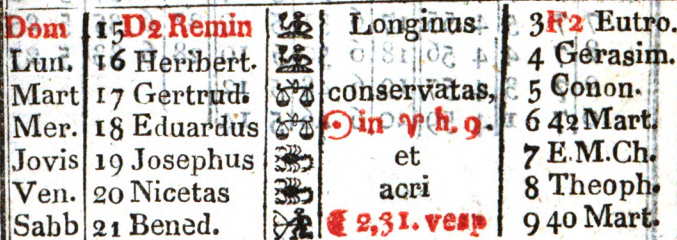 Dom 15 D2 Remin ♍ Longinus 3 F2 Eutro.
Lun. 16 Heribert. ♍ 4 Gerasim.
Mart 17 Gertrud. ♎ conservatas, 5 Conon.
Mer. 18 Eduardus ♎ ☉ in ♈ h. 9. 6 42 Mart.
Jovis 19 Josephus ♏ et 7 E.M.Ch.
Ven. 20 Nicetas ♏ acri 8 Theoph.
Sabb 21 Bened. ♐ ☾ 2,31. vesp 9 40 Mart.